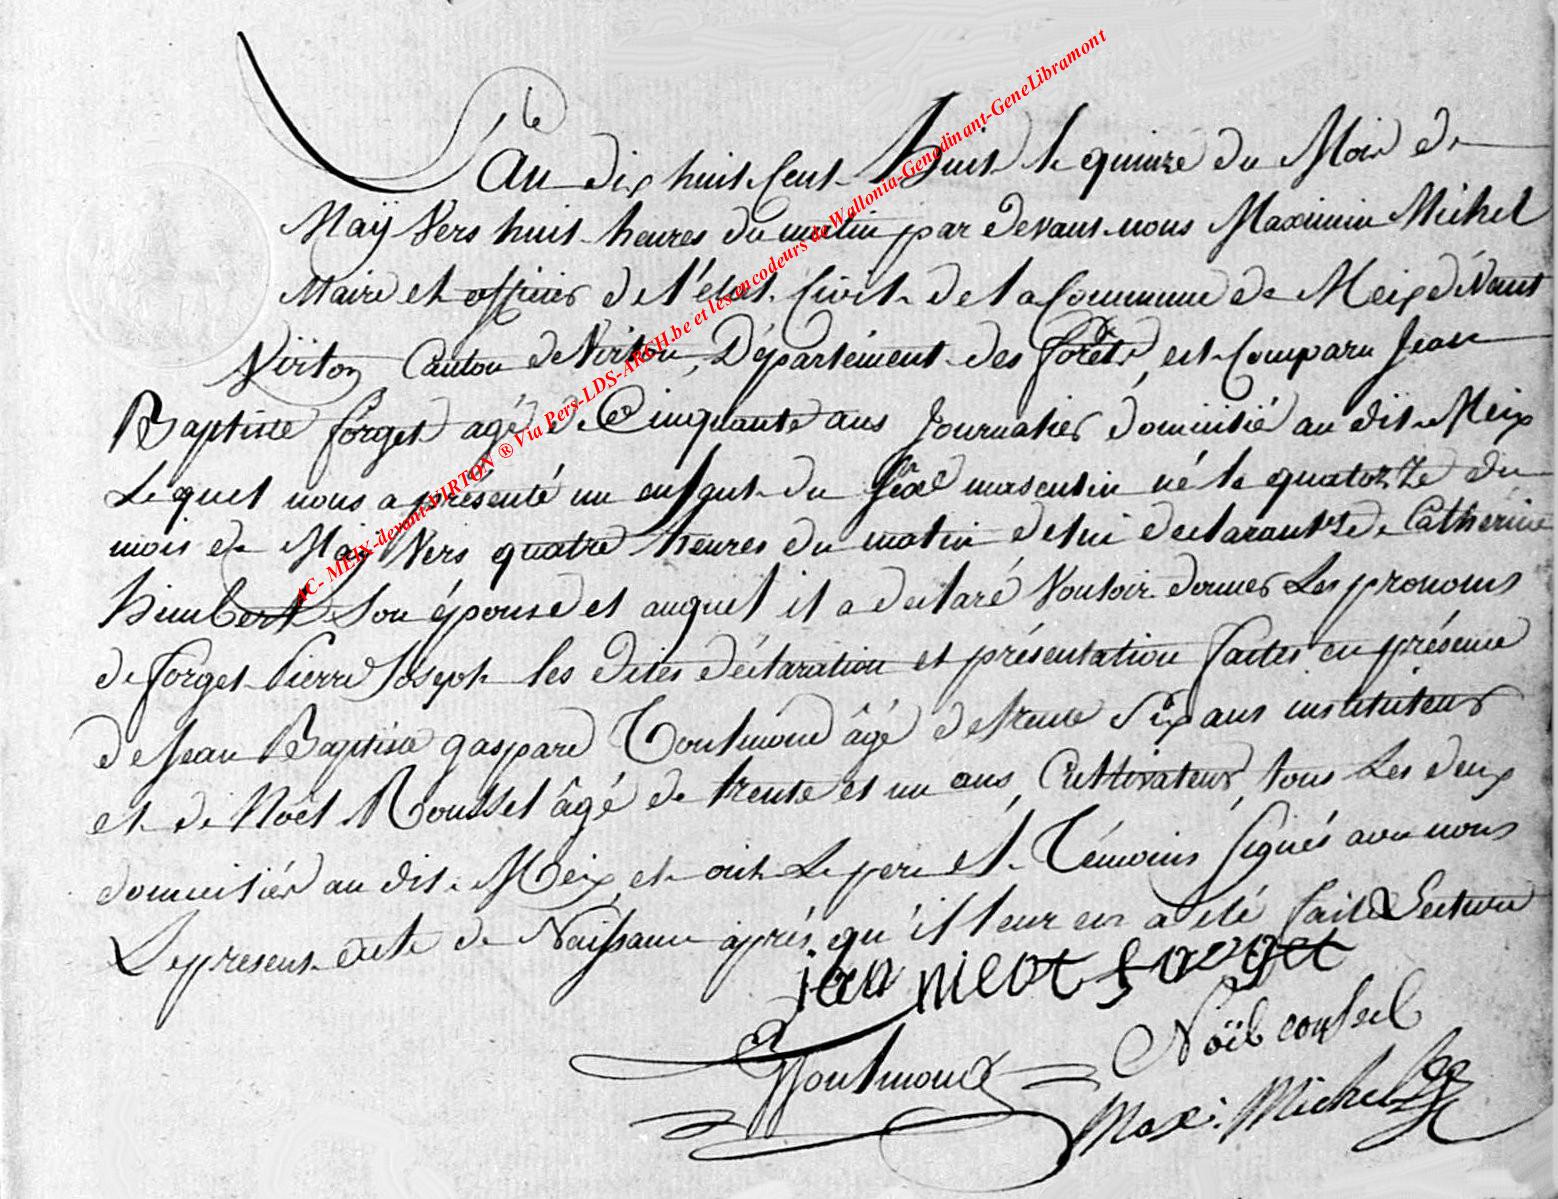 L'an dix huit Cent huit le quinze du Mois de
Maÿ Vers huit heures du matin par devant nous Maximin Michel
Maire et officier de l'état Civil de la Commune de Meix devant
Virton Canton de Virton, Département des forêts, est Comparu Jean
Baptiste forget agé de Cinquante ans Journalier domicilié au dit Meix
Lequel nous a présenté un enfant du Sexe masculin né le quatorze du
mois de Maÿ Vers quatre heures du matin de lui declarant et de Cathérine
himbert Son épouse et auquel il a declaré Vouloir donner Les pronoms
de forget Pierre Joseph les dites déclaration et présentation faites en présence
de Jean Baptiste gaspard Toulmond âgé de trente Six ans instituteur
et de Noël Roussel âgé de trente et un ans, Cultivateur, tous Les deux
domiciliés au dit Meix, et ont Le pere et Témoins Signés avec nous
Le present acte de Naissance après qu'il leur en a été fait Lecture
forget
Toulmond
Noël
Max: Michel
AC- MEIX-devant-VIRTON ® Via Pers-LDS-ARCH.be et les encodeurs de Wallonia-Genedinant-GeneLibramont